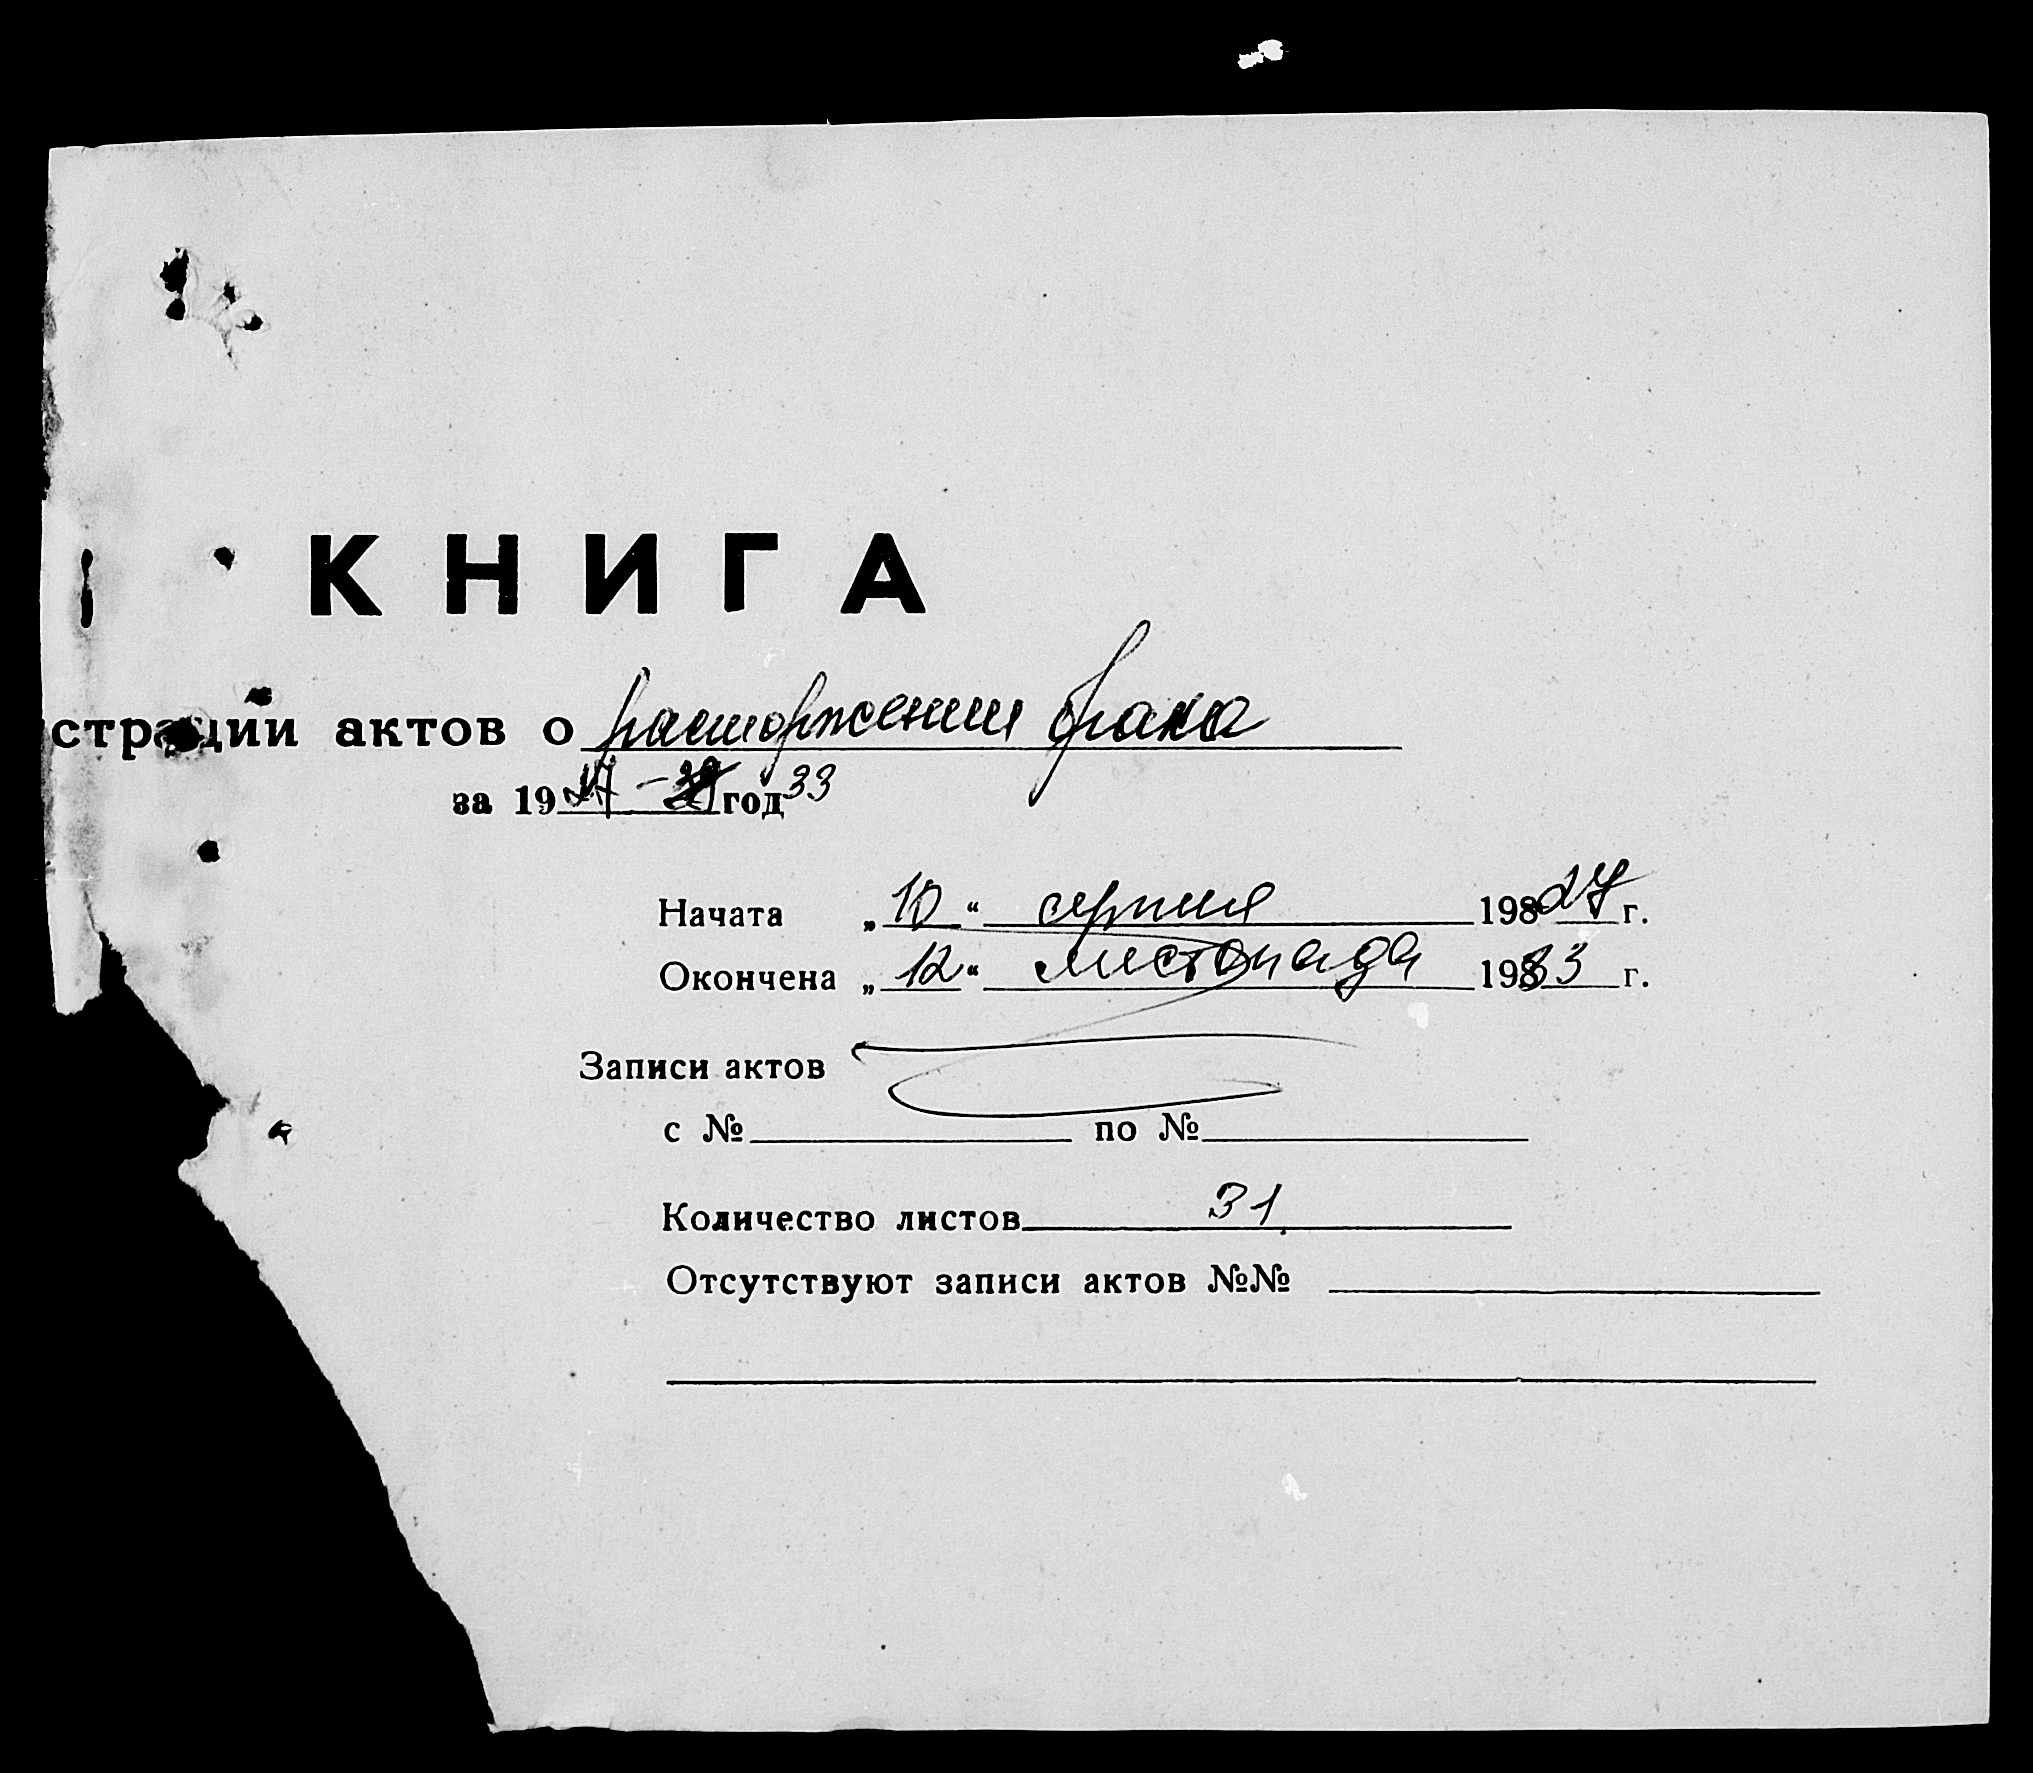 КНИГА
страции актов о расторжении брака
за 1927 - год 33
Начата „10“ серпня 1927 г.
Окончена „12“ листопада 1933 г.
Записи актов
с № по №
Количество листов 31
Отсутствуют записи актов №№